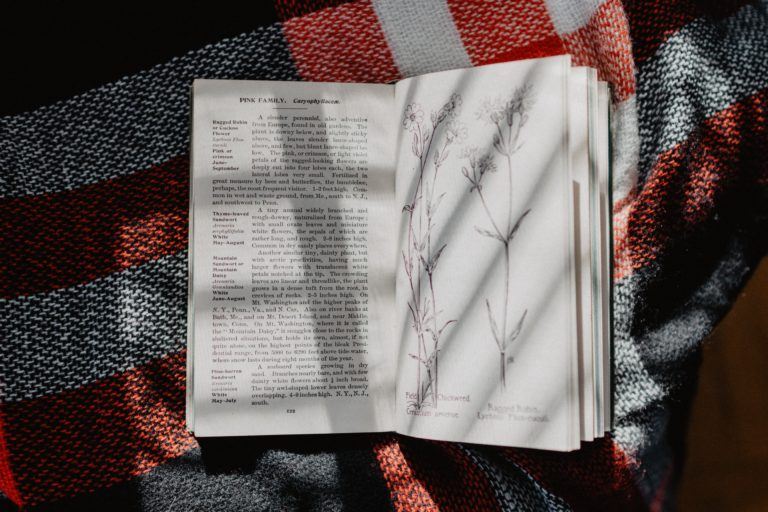 PINK FAMILY. Caryophyllaceæ.
Ragged Robin
or Cuckoo
Flower
Lychnis Flos-
cuculi
Pink or
crimson
June-
September
A slender perennial, also adventive
from Europe, found in old gardens. The
plant is downy below, and slightly sticky
above, the leaves slender lance-shaped
above, and few, but blunt lance-shaped be-
low. The pink, or crimson, or light violet
petals of the ragged-looking flowers are
deeply cut into four lobes each, the two
lateral lobes very small. Fertilized in
great measure by bees and butterflies, the bumblebee,
perhaps, the most frequent visitor. 1-2 feet high. Com-
mon in wet and waste ground, from Me., south to N. J.,
and southwest to Penn.
Thyme-leaved
Sandwort
Arenaria
serpyllifolia
White
May-August
A tiny annual widely branched and
rough-downy, naturalized from Europe;
with small ovate leaves and miniature
white flowers, the sepals of which are
rather long, and rough. 2-8 inches high.
Common in dry sandy places everywhere.
Mountain
Sandwort or
Mountain
Daisy
Arenaria
Groenlandica
White
June-August
Another similar tiny, dainty plant, but
with arctic proclivities, having much
larger flowers with translucent white
petals notched at the tip. The crowding
leaves are linear and threadlike, the plant
grows in a dense tuft from the root, in
crevices of rocks. 2-5 inches high. On
Mt. Washington and the higher peaks of
N. Y., Penn., Va., and N. Car. Also on river banks at
Bath, Me., and on Mt. Desert Island, and near Middle-
town, Conn. On Mt. Washington, where it is called
the "Mountain Daisy," it snuggles close to the rocks in
sheltered situations, but holds its own, almost, if not
quite alone, on the highest points of the bleak Presi-
dential range, from 5000 to 6290 feet above tide water,
where snow lasts during eight months of the year.
Pine-barren
Sandwort
Arenaria
caroliniana
White
May-July
A seaboard species growing in dry
sand. Branches nearly bare, and with few
dainty white flowers about ½ inch broad.
The tiny awl-shaped lower leaves densely
overlapping. 4-9 inches high. N. Y., N. J.,
south.
Field Chickweed.
Cerastium arvense.
Ragged Robin.
Lychnis Flos-cuculi.